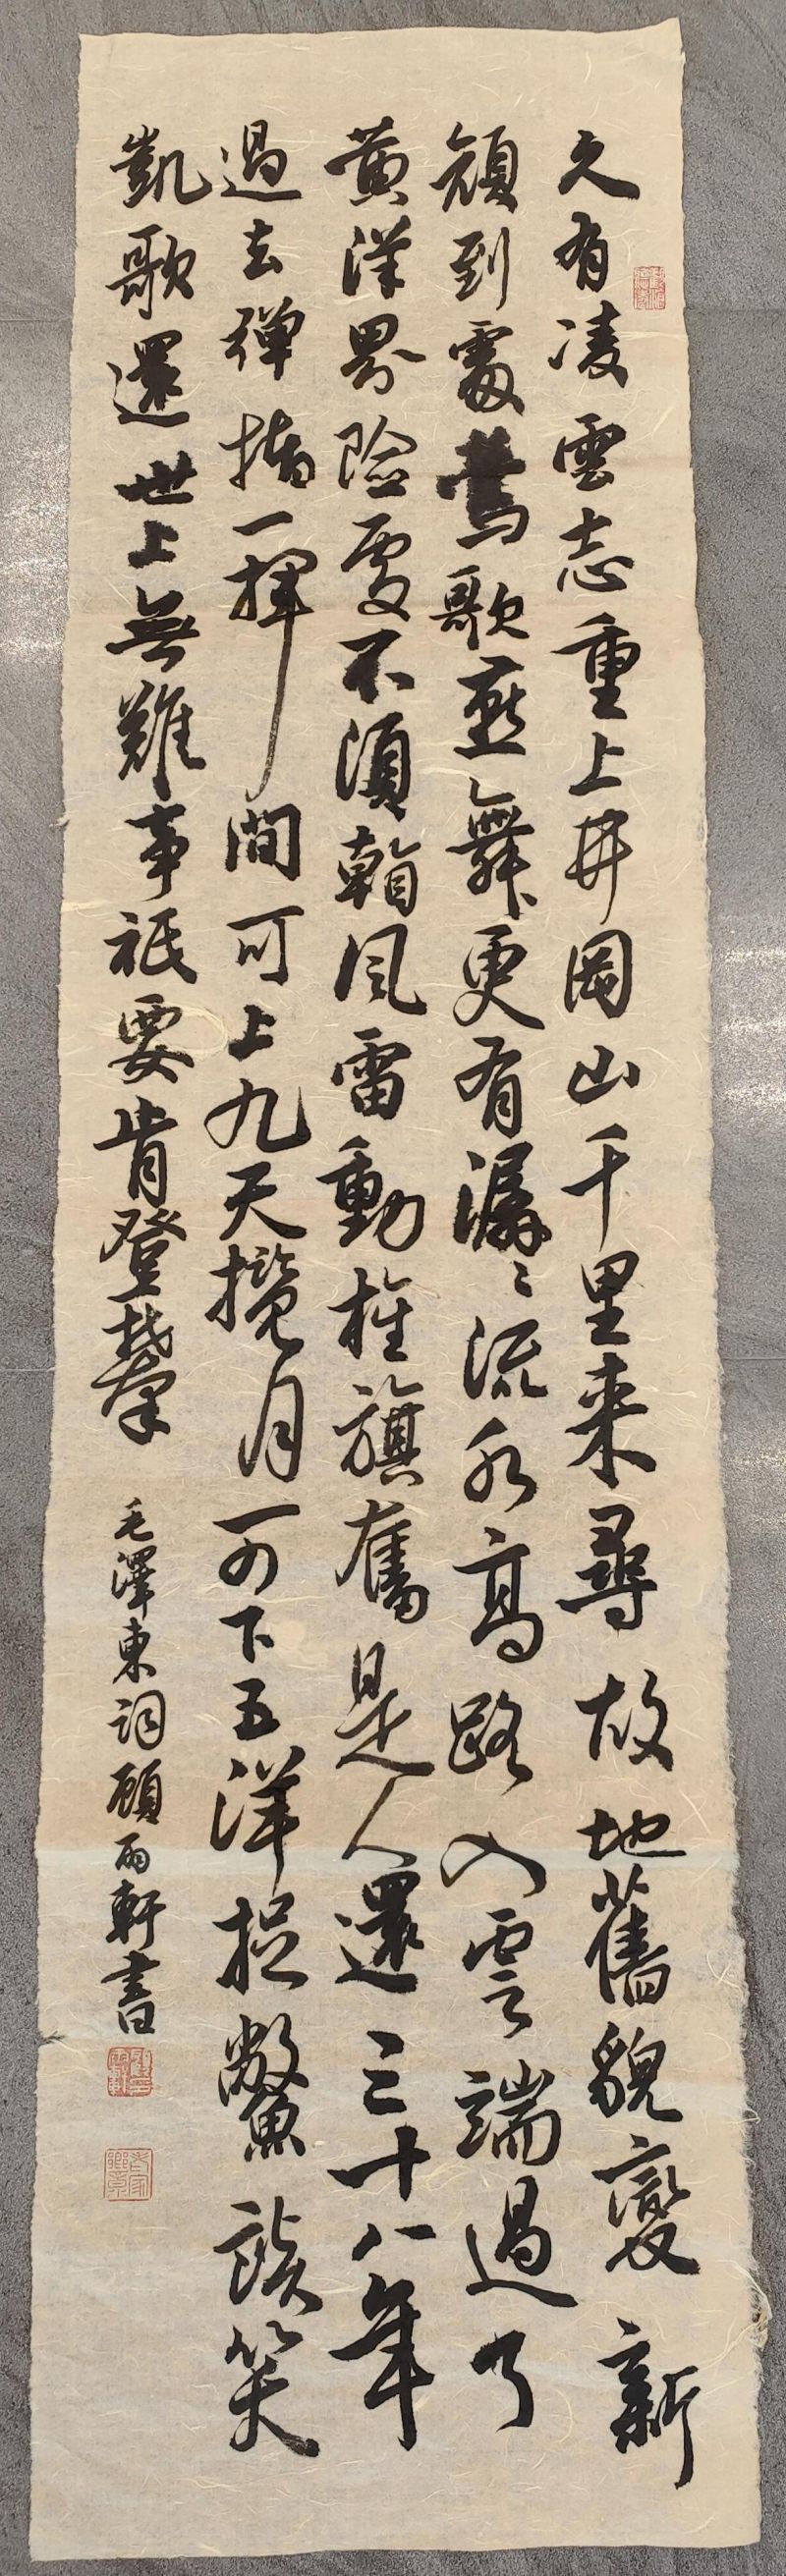 久有凌雲志重上井岡山千里来尋故地舊貌變新
顔到處鶯歌燕舞更有潺〻流水高路入雲端過了
黄洋界險處不須看風雷動旌旗奮是人還三十八年
過去彈指一揮間可上九天攬月可下五洋捉鱉談笑
凱歌還世上無難事祇要肯登攀
毛澤東詞顧雨軒書